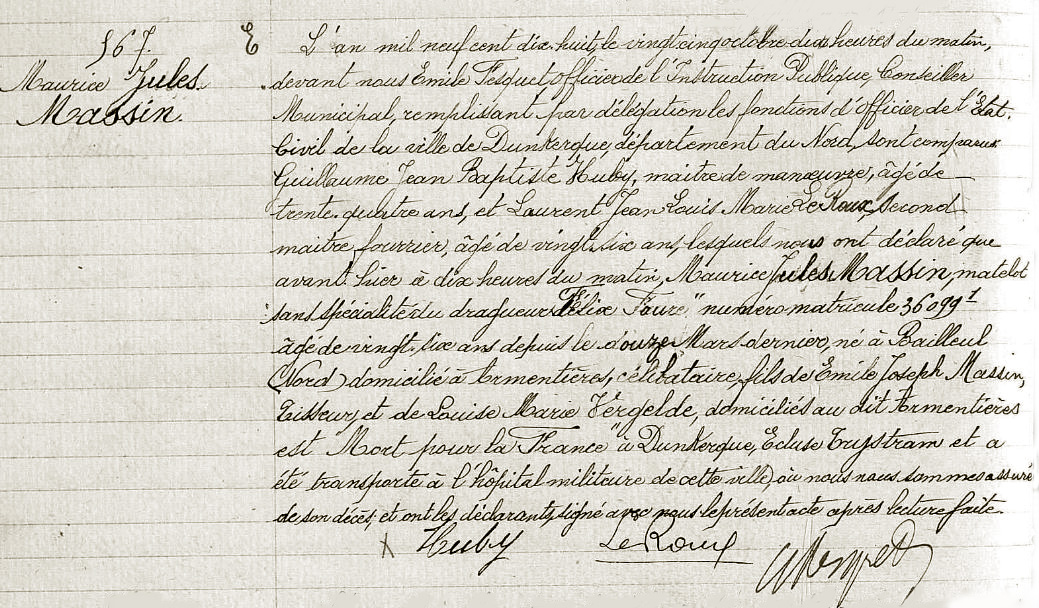 567.
Maurice Jules
Massin.
E L'an mil neuf cent dix huit, le vingt cinq octobre dix heures du matin,
devant nous Emile Fesquet officier de l'Instruction Publique, Conseiller
Municipal, remplissant par délégation les fonctions d'Officier de l'Etat.
Civil de la ville de Dunkerque, département du Nord, sont comparus
Guillaume Jean Baptiste Huby, maitre de manœuvre, âgé de
trente quatre ans, et Laurent Jean Louis Marie Le Roux, second
maitre fourrier, âgé de vingt six ans, lesquels nous ont déclaré que
avant hier à dix heures du matin, Maurice Jules Massin, matelot
sans spécialité du dragueur "Félix Faure" numéro matricule 36099¹
âgé de vingt six ans depuis le douze Mars dernier, né à Bailleul
(Nord) domicilié à Armentières, célibataire, fils de Emile Joseph Massin,
Tisseur, et de Louise Marie Vergelde, domiciliés au dit Armentières
est Mort pour la France" à Dunkerque, Ecluse Trystram et a
été transporté à l'hôpital militaire de cette ville, où nous nous sommes assuré
de son décès, et ont les déclarants, signé avec nous le présent acte après lecture faite.
Huby Le Roux